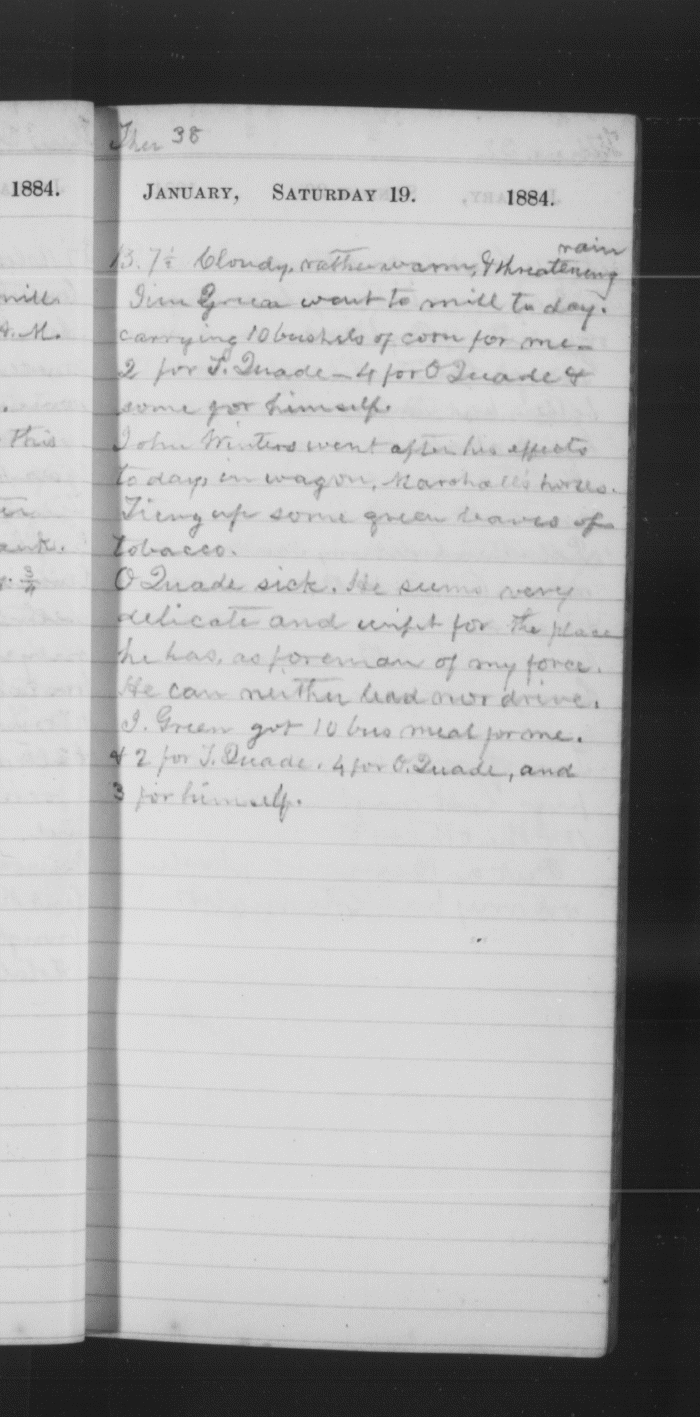 1884.
mill
A.M.
this
Ther 38
JANUARY, SATURDAY 19. 1884.
B. 7½ Cloudy, rather warm, & threatening rain
Jim Green went to mill to day.
carrying 10 bushels of corn for me –
2 for J. Quade – 4 for O Quade &
some for himself.
John Winters went after his effects
to day, in wagon, Marshall's horses.
Tieing up some green leaves of
tobacco.
O Quade sick. He seems very
delicate and unfit for the place
he has, as foreman of my force.
He can neither lead nor drive.
J. Green got 10 bus meal for me.
& 2 for J. Quade. 4 for O. Quade, and
3 for himself.